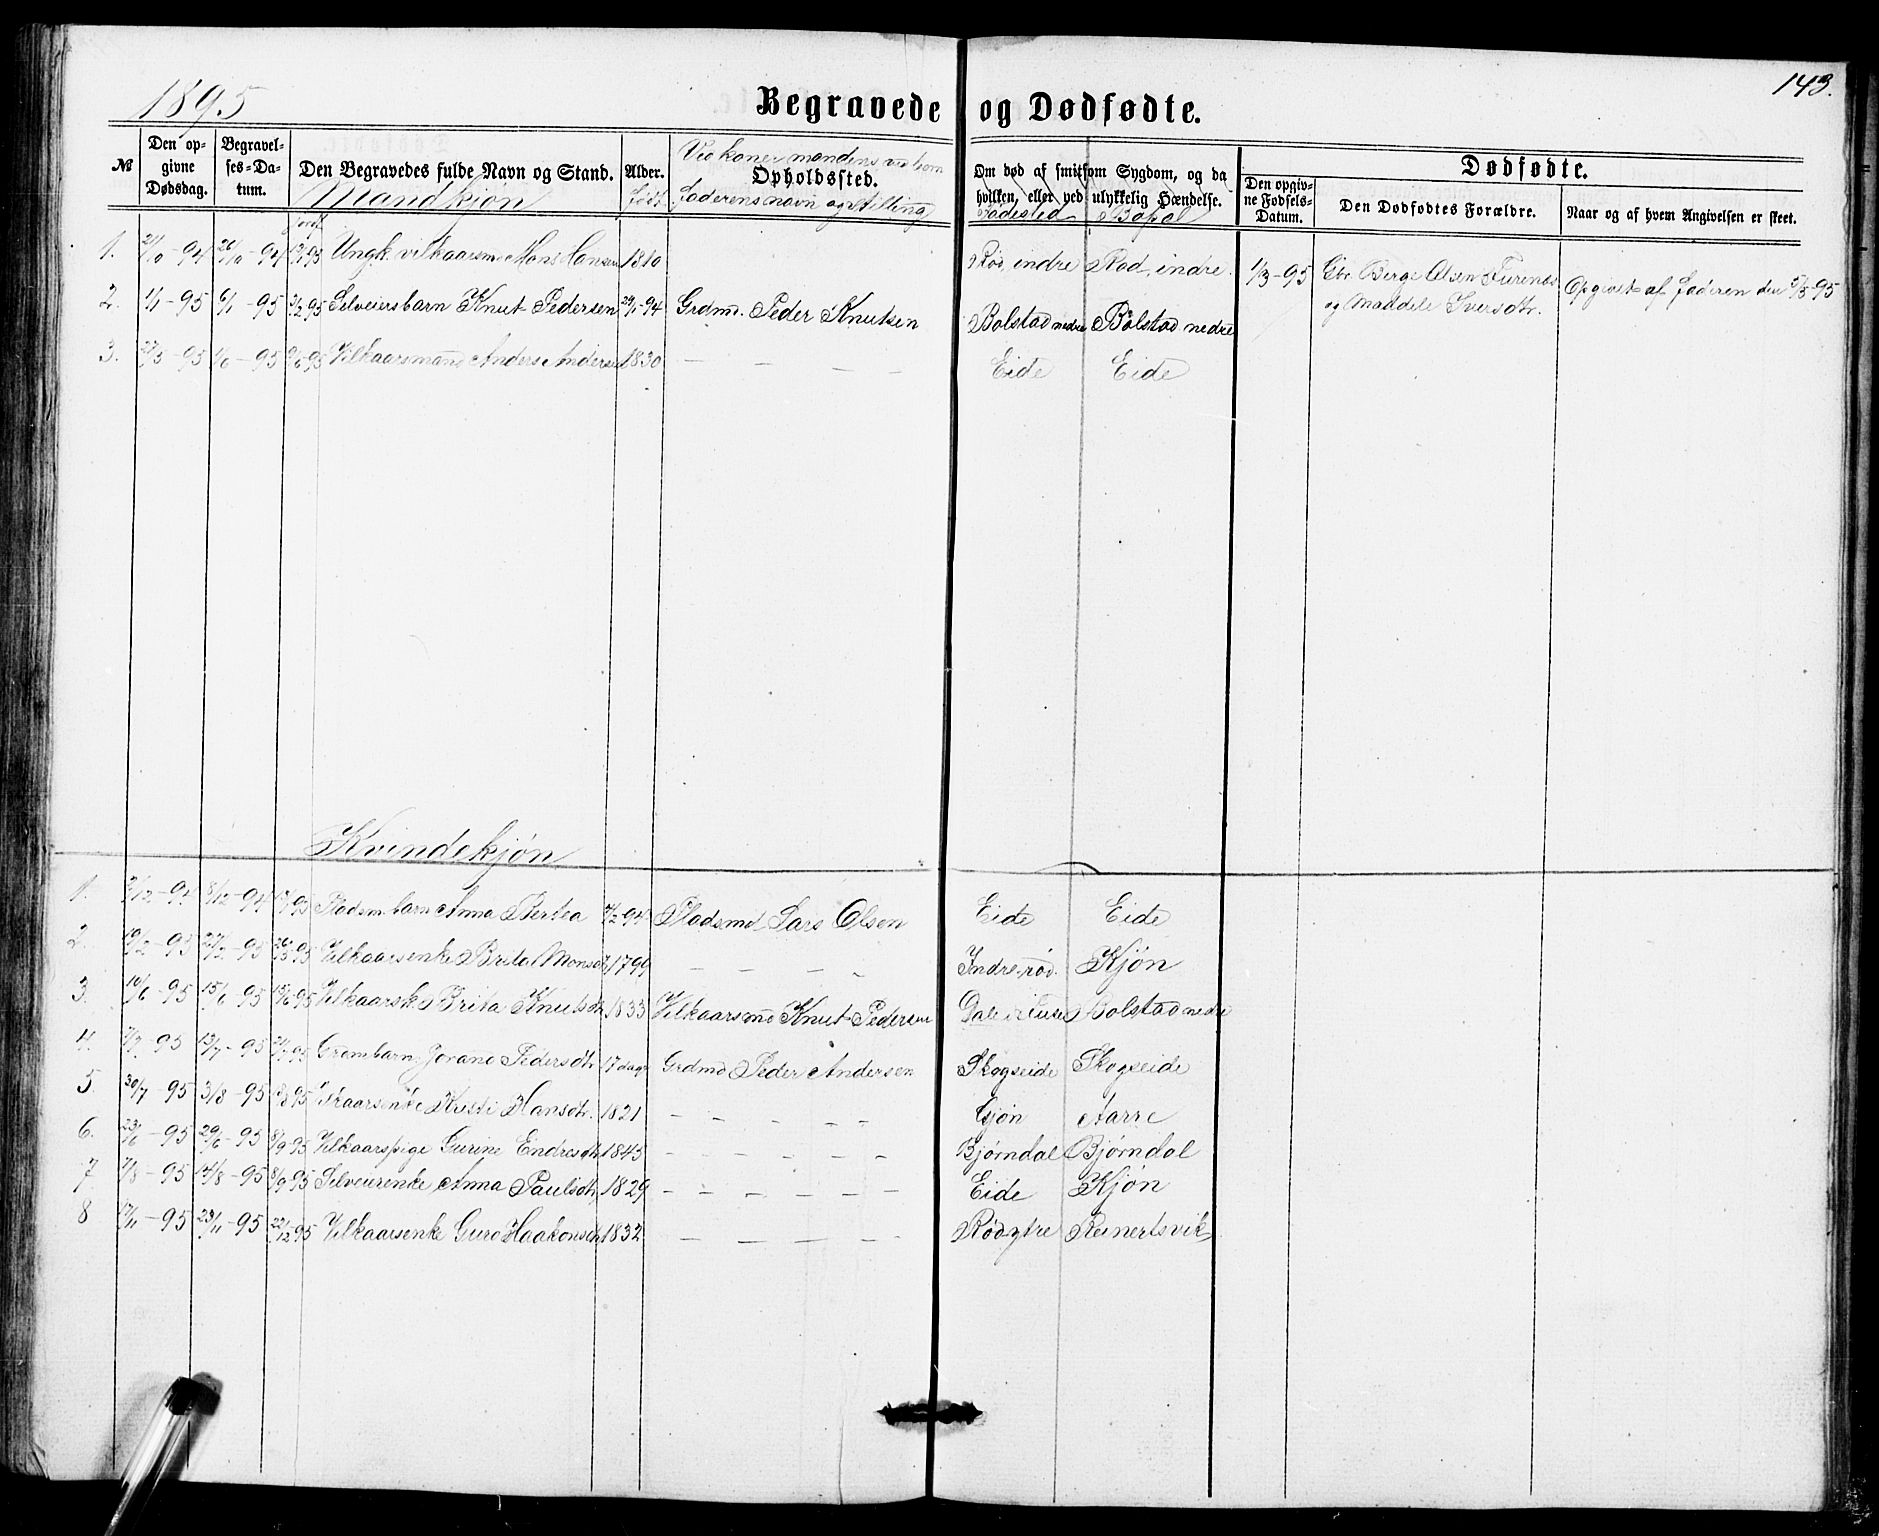 1895
Begravede og Dødfødte.
143.
№
Den opgivne Dødsdag.
Begravelses-Datum.
Den Begravedes fulde Navn og Stand.
Mandkjøn
Alder.
født
Ved koner mandens ved børn
Opholdssted.
faderens navn og stilling
Om død af smitsom Sygdom, og da hvilken, eller ved ulykkelig Hændelse.
Fødested Bopæl
Dødfødte.
Den opgivne Fødsels-Datum.
Den Dødfødtes Forældre.
Naar og af hvem Angivelsen er skeet.
1. 21/10-94 26/10-94 13/1 95 Ungk. vilkaarsm. Mons Hansen 1810 Rød, indre Rød, indre.
1/3-95 Gbr. Berge Olsen Furenes og Maddele Iversdtr. Opgivet af faderen den 5/3-95
2. 1/1-95 6/1-95 3/2 95 Selveiersbarn Knut Pedersen 29/11-94 Grdmd. Peder Knutsen Bolstad nedre Bolstad nedre
3. 27/5-95 1/6-95 9/6 95 Vilkaarsmand Anders Andersen 1830 — — — — Eide Eide
Kvindekjøn
1. 2/12-94 8/12-94 13/1 95 Pladsm barn Anna Bertea 7/2 94 Pladsmd Lars Olsen Eide Eide
2. 19/2-95 27/2-95 Vilkaarsenke Brita Monsdtr 1799 — — — — Indre-rød. Kjøn
3. 10/6-95 15/6-95 Vilkaarsk. Brita Knutsdtr 1833 Vilkaarsmd Knut Pedersen Dale i Fuse Bolstad nedre
4. 7/7-95 13/7-95 Grdmbarn Pedersdtr 17 dage Grdmd Peder Andersen Skogseide Skogseide
5. 30/7-95 3/8-95 Kristi Hansdtr. 1821 — — — — Gjøn Aarre
6. 23/6-95 29/6-95 8/9 95 Vilkaarspige Gurine Eindresdtr 1843 — — — — — Bjørndal Bjørndal
7 7/8-95 14/8-95 8/9 95 Selveierenke Anna Paulsdtr 1829 — — — — — — Eide Kjøn
8 17/11-95 23/11-95 22/12 95 Vilkaarsenke Guro Haakonsdtr 1832 — — — — — Rød ytre Reinertsvik